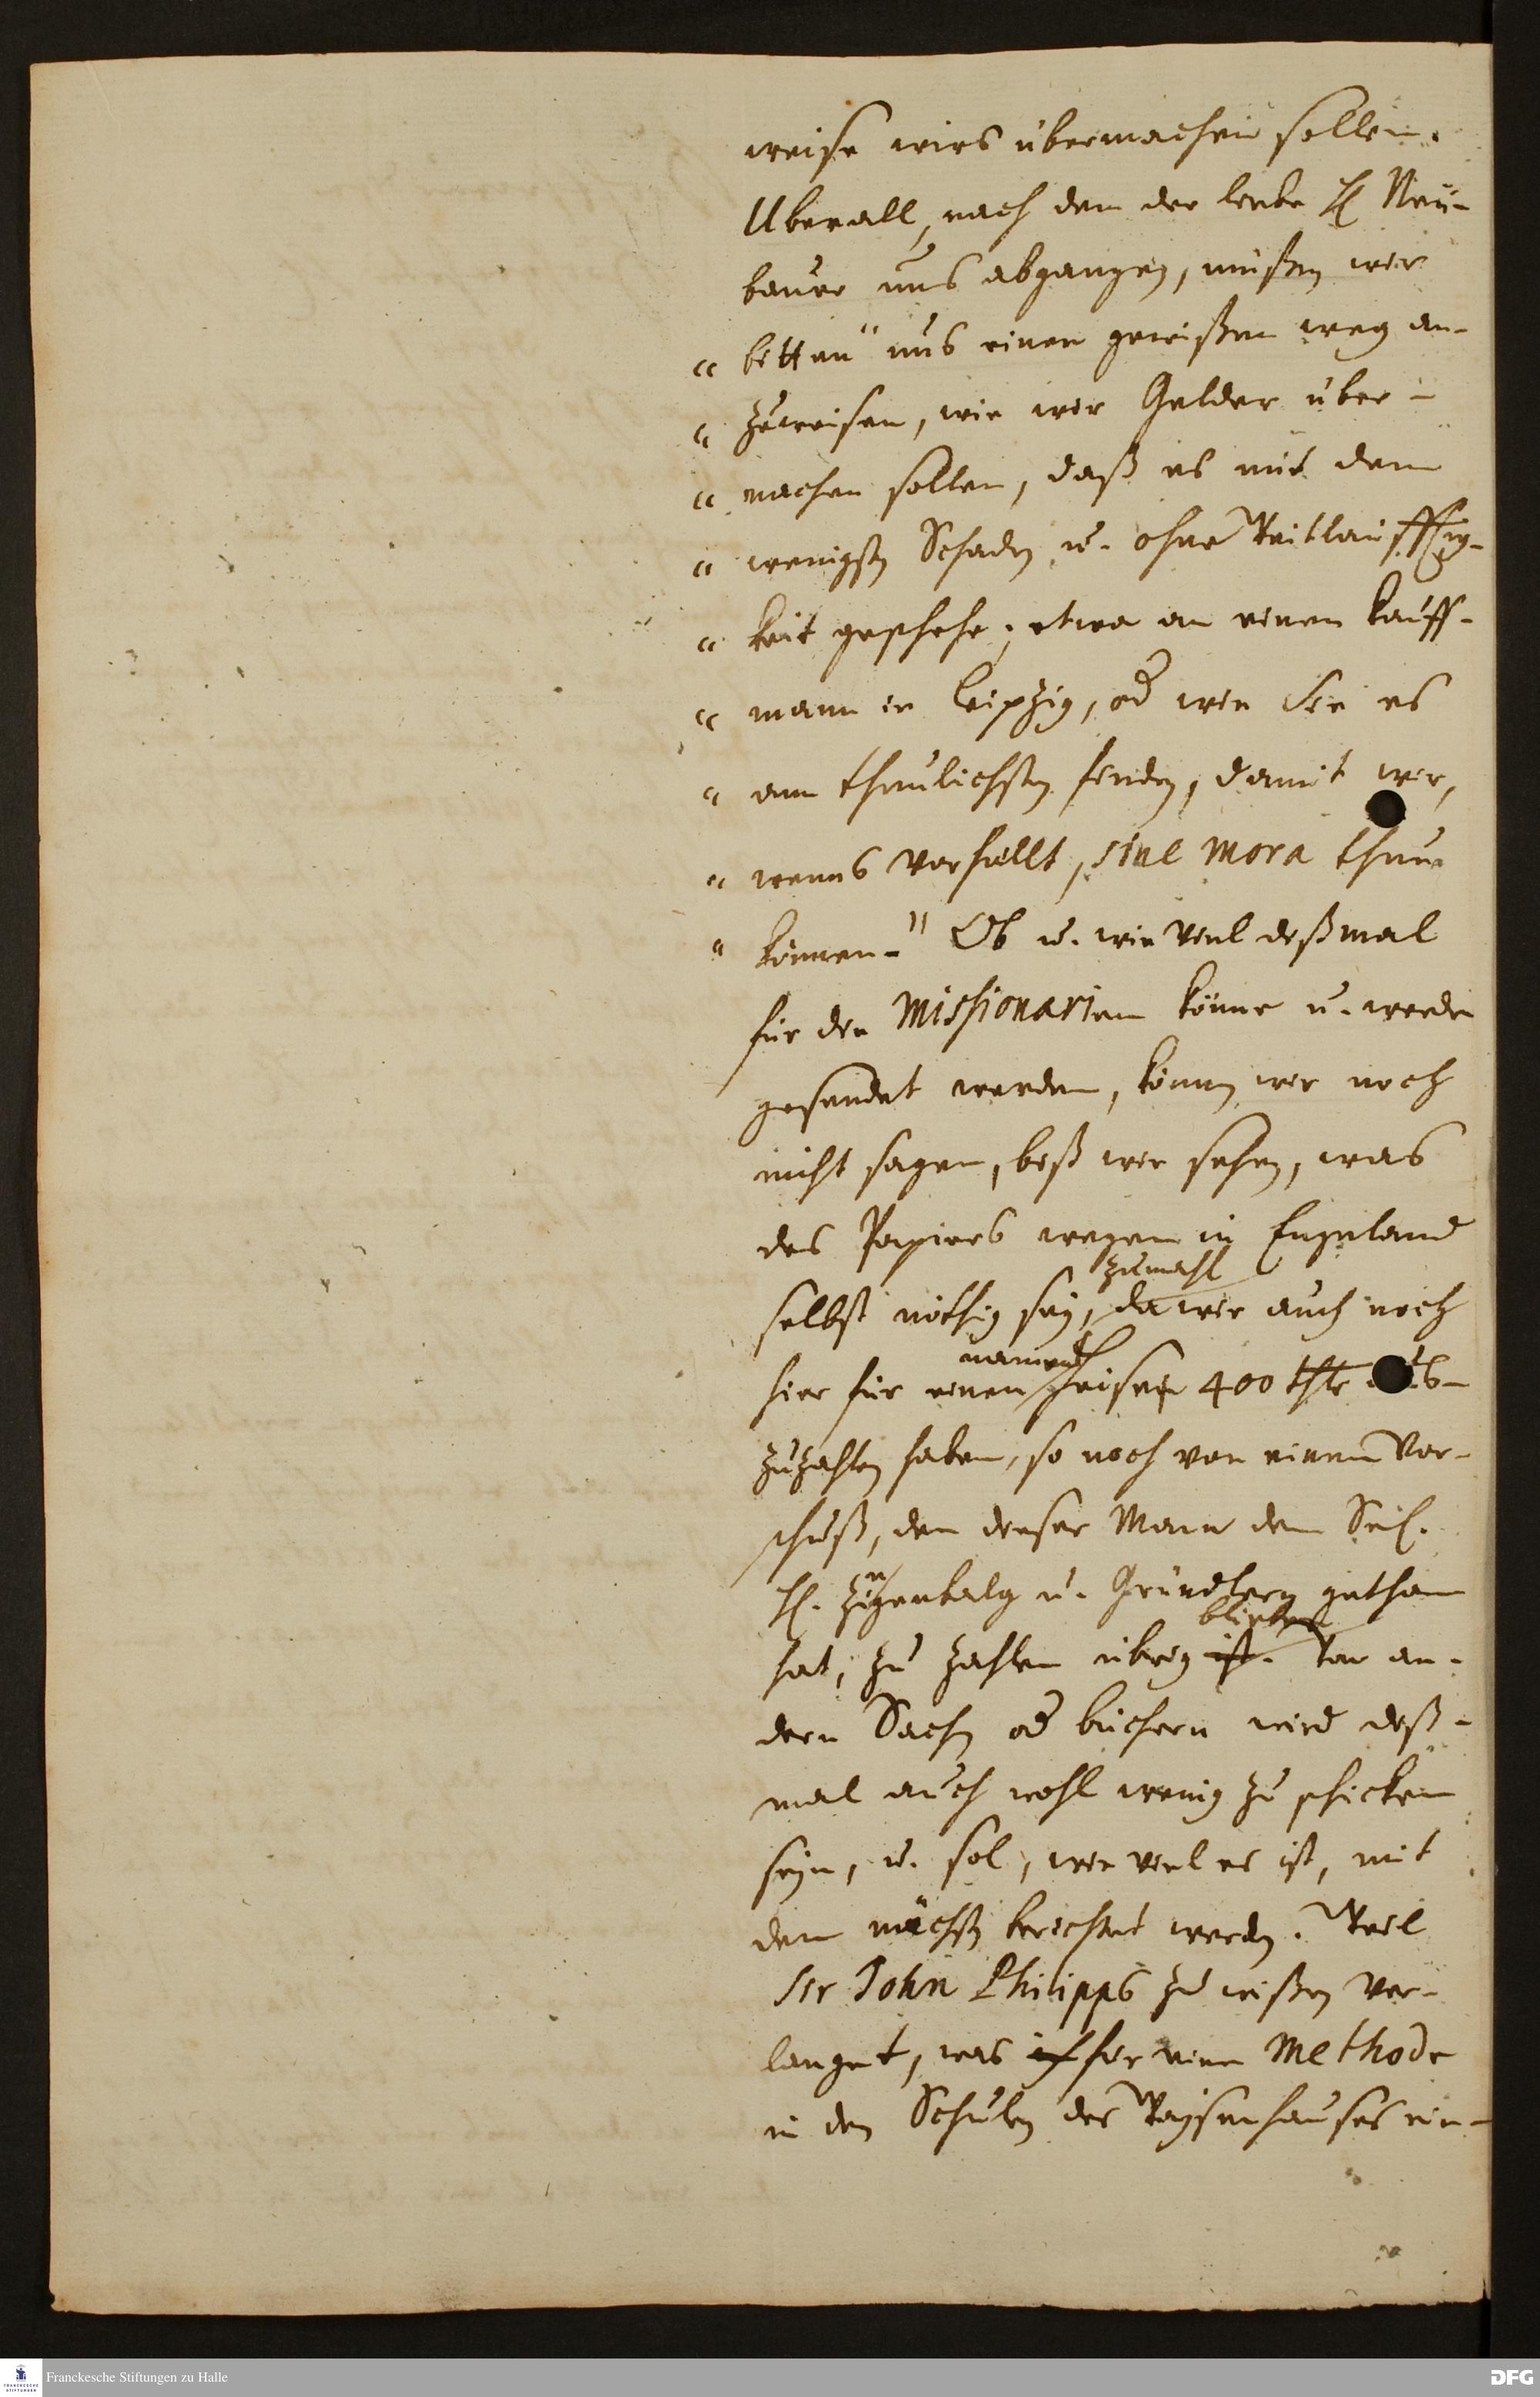 weise wirs übermachen sollen.
Uberall, nach dem der liebe H Neu-
bauer uns abgangen, müßen wir
" bitten" uns einen gewißen weg an-
" zuweisen, wie wir Gelder über-
" machen sollen, daß es mit dem
" wenigsten Schaden u. ohne Weitläufftig-
" keit geschehe; etwa an einen Kauff-
" mann in Leipzig, od wie Sie es
" am thunlichsten finden, damit wir,
" wenns vorfällt, sine mora thun
" können-" Ob u. wie viel dißmal
für die Missionarien könne u. werde
gesendet werden, können wir noch
nicht sagen, biß wir sehen, was
des Papiers wegen in Engeland
zumahl
selbst nöthig sey, da wir auch noch
namens
hier für einen 400 thlr
zuzahlen haben, so noch von einem Vor-
schuß, den dieser Mann dem Seel.
H. Ziegenbalg u. Gründlern gethan
blieben
hat, zu zahlen übrig ist. Von an-
dern Sachen od büchern wird diß-
mal auch wohl wenig zu schicken
seyn, u. sol, wie viel es ist, mit
dem nächsten berichtet werden. Weil
Sir John Philipps zu wißen ver-
langet, was für eine Methode
in den Schulen des Waysenhauses ein-
Franckesche Stiftungen zu Halle
FRANCKESCHE STIFTUNGEN
DFG